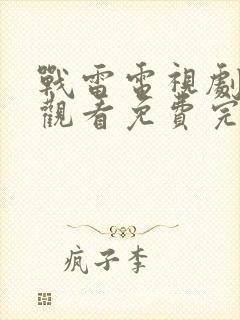 戰雷電視劇
觀看免費完
疯子李